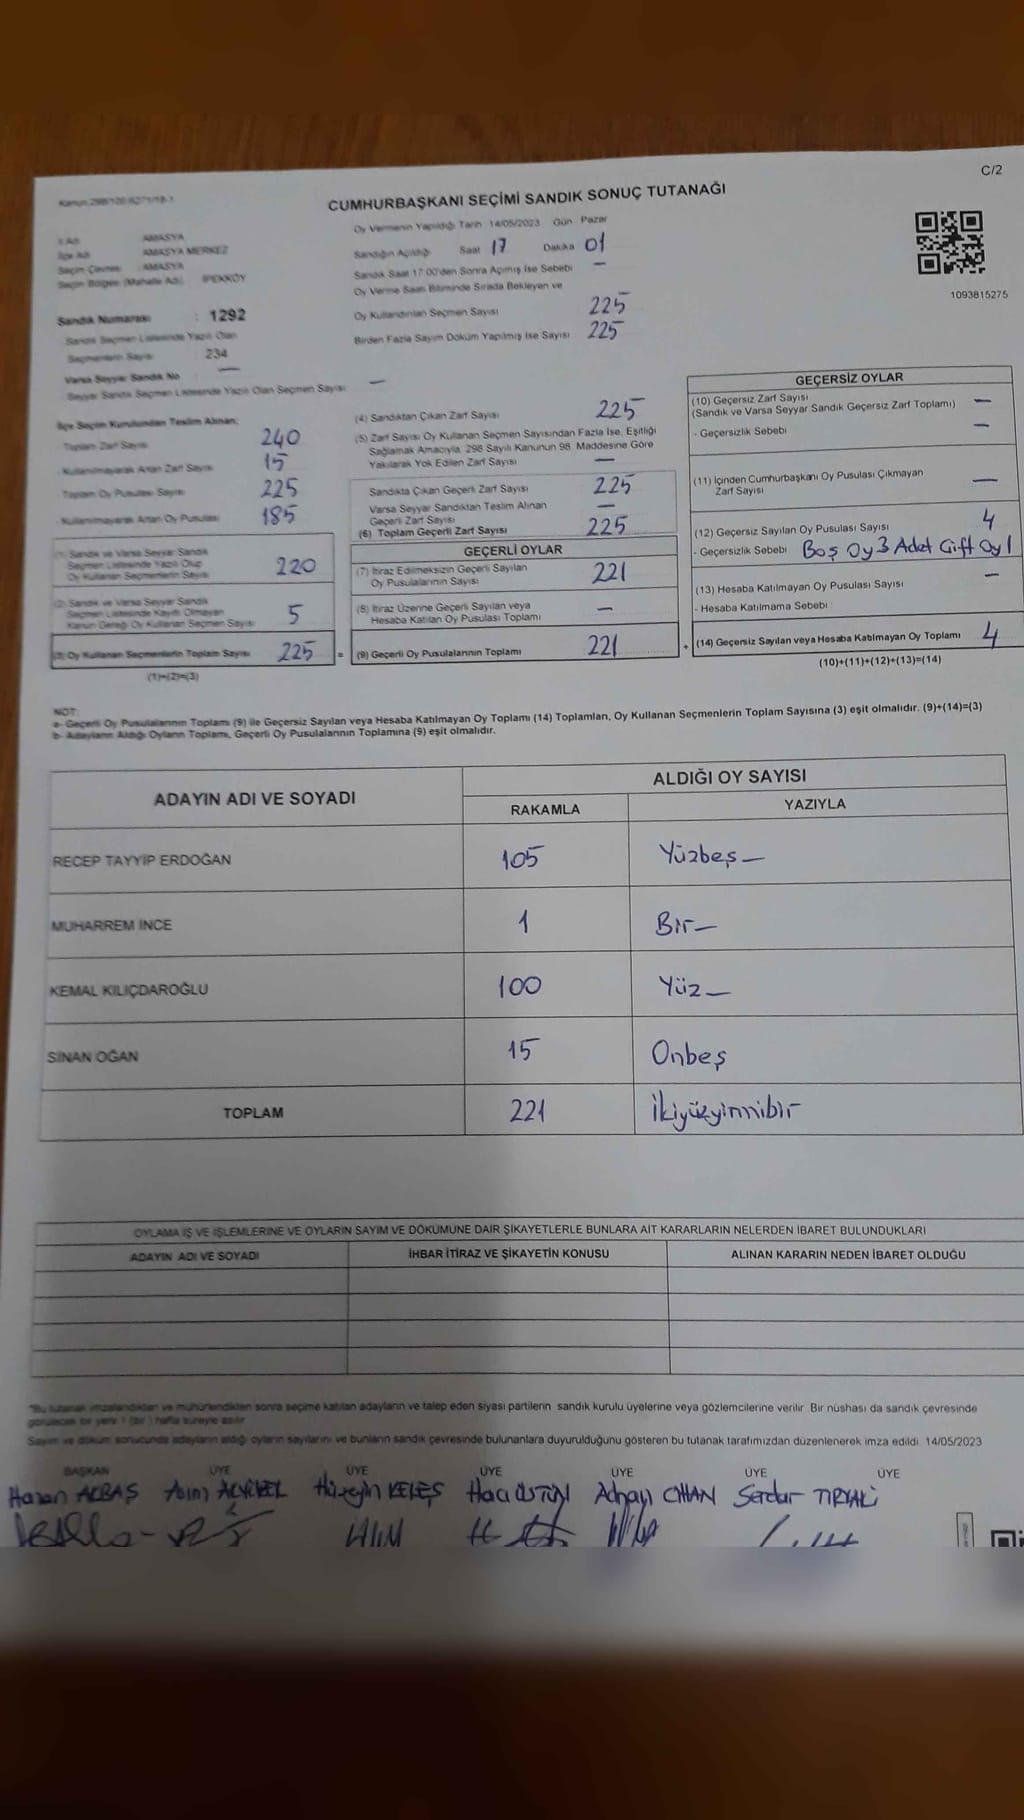 C/2
CUMHURBAŞKANI SEÇİMİ SANDIK SONUÇ TUTANAĞI
İl Adı : AMASYA
İlçe Adı : AMASYA MERKEZ
Seçim Çevresi : AMASYA
Seçim Bölgesi (Mahalle Adı) : İPEKKÖY
Sandık Numarası : 1292
Sandık Seçmen Listesinde Yazılı Olan
Seçmenlerin Sayısı : 234
Varsa Seyyar Sandık No —
Seyyar Sandık Seçmen Listesinde Yazılı Olan Seçmen Sayısı —
Oy Vermenin Yapıldığı Tarih 14/05/2023 Gün Pazar
Sandığın Açıldığı Saat 17 Dakika 01
Sandık Saat 17:00'den Sonra Açılmış İse Sebebi —
Oy Verme Saati Bitiminde Sırada Bekleyen ve
Oy Kullandırılan Seçmen Sayısı 225
Birden Fazla Sayım Döküm Yapılmış İse Sayısı 225
1093815275
İlçe Seçim Kurulundan Teslim Alınan;
Toplam Zarf Sayısı 240
Kullanılmayarak Artan Zarf Sayısı 15
Toplam Oy Pusulası Sayısı 225
Kullanılmayarak Artan Oy Pusulası 185
(1) Sandık ve Varsa Seyyar Sandık
Seçmen Listesinde Yazılı Olup
Oy Kullanan Seçmenlerin Sayısı 220
(2) Sandık ve Varsa Seyyar Sandık
Seçmen Listesinde Kayıtlı Olmayan
Kanun Gereği Oy Kullanan Seçmen Sayısı 5
(3) Oy Kullanan Seçmenlerin Toplam Sayısı 225
(1)+(2)=(3)
(4) Sandıktan Çıkan Zarf Sayısı 225
(5) Zarf Sayısı Oy Kullanan Seçmen Sayısından Fazla İse, Eşitliği
Sağlamak Amacıyla, 298 Sayılı Kanunun 98. Maddesine Göre
Yakılarak Yok Edilen Zarf Sayısı —
Sandıkta Çıkan Geçerli Zarf Sayısı 225
Varsa Seyyar Sandıktan Teslim Alınan
Geçerli Zarf Sayısı —
(6) Toplam Geçerli Zarf Sayısı 225
GEÇERLİ OYLAR
(7) İtiraz Edilmeksizin Geçerli Sayılan
Oy Pusulalarının Sayısı 221
(8) İtiraz Üzerine Geçerli Sayılan veya
Hesaba Katılan Oy Pusulası Toplamı —
= (9) Geçerli Oy Pusulalarının Toplamı 221
GEÇERSİZ OYLAR
(10) Geçersiz Zarf Sayısı
(Sandık ve Varsa Seyyar Sandık Geçersiz Zarf Toplamı) —
- Geçersizlik Sebebi —
(11) İçinden Cumhurbaşkanı Oy Pusulası Çıkmayan
Zarf Sayısı —
(12) Geçersiz Sayılan Oy Pusulası Sayısı 4
- Geçersizlik Sebebi Boş Oy 3 Adet Çift Oy 1
(13) Hesaba Katılmayan Oy Pusulası Sayısı —
- Hesaba Katılmama Sebebi
+ (14) Geçersiz Sayılan veya Hesaba Katılmayan Oy Toplamı 4
(10)+(11)+(12)+(13)=(14)
NOT:
a- Geçerli Oy Pusulalarının Toplamı (9) ile Geçersiz Sayılan veya Hesaba Katılmayan Oy Toplamı (14) Toplamları, Oy Kullanan Seçmenlerin Toplam Sayısına (3) eşit olmalıdır. (9)+(14)=(3)
b- Adayların Aldığı Oyların Toplamı, Geçerli Oy Pusulalarının Toplamına (9) eşit olmalıdır.
ADAYIN ADI VE SOYADI ALDIĞI OY SAYISI
RAKAMLA YAZIYLA
RECEP TAYYİP ERDOĞAN 105 Yüzbeş—
MUHARREM İNCE 1 Bir—
KEMAL KILIÇDAROĞLU 100 Yüz—
SİNAN OĞAN 15 Onbeş
TOPLAM 221 İkiyüzyirmibir
OYLAMA İŞ VE İŞLEMLERİNE VE OYLARIN SAYIM VE DÖKÜMÜNE DAİR ŞİKAYETLERLE BUNLARA AİT KARARLARIN NELERDEN İBARET BULUNDUKLARI
ADAYIN ADI VE SOYADI İHBAR İTİRAZ VE ŞİKAYETİN KONUSU ALINAN KARARIN NEDEN İBARET OLDUĞU
*Bu tutanak imzalandıktan ve mühürlendikten sonra seçime katılan adayların ve talep eden siyasi partilerin sandık kurulu üyelerine veya gözlemcilerine verilir. Bir nüshası da sandık çevresinde
görülecek bir yere 1 (bir) hafta süreyle asılır.
Sayım ve döküm sonucunda adayların aldığı oyların sayılarını ve bunların sandık çevresinde bulunanlara duyurulduğunu gösteren bu tutanak tarafımızdan düzenlenerek imza edildi. 14/05/2023
BAŞKAN ÜYE ÜYE ÜYE ÜYE ÜYE ÜYE
Hasan AKBAŞ Hüseyin KELEŞ Hacı ÜSTÜN CİHAN Serdar TİRYAKİ